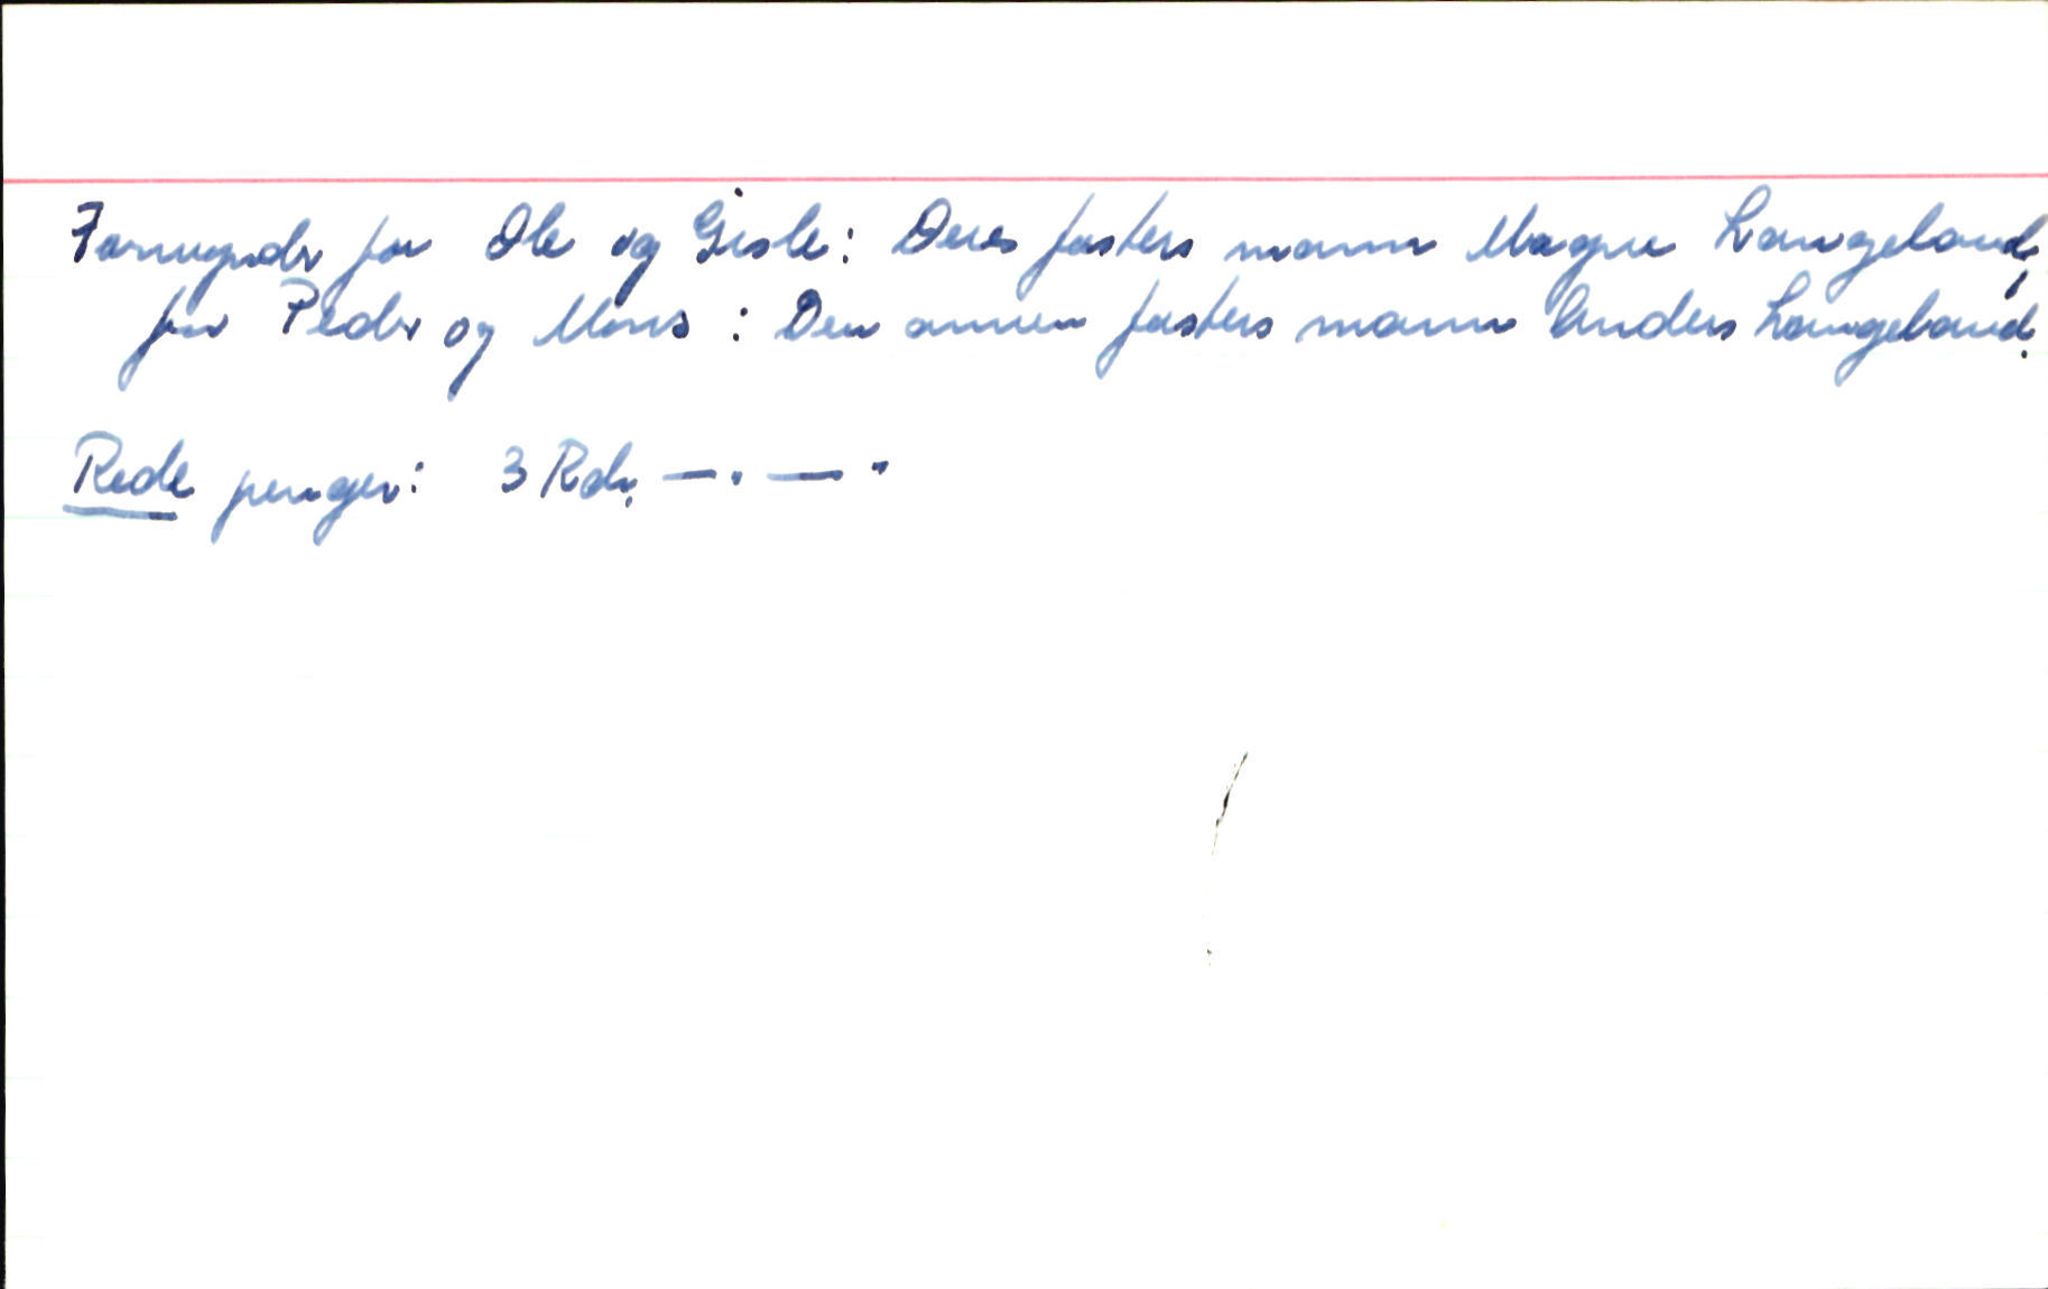 Formynder for Ole og Gisle: Deres fasters mann Magne Langeland,
for Peder og Mons: Den annen fasters mann Anders Langeland.
Rede penger: 3 Rdr. — " — "